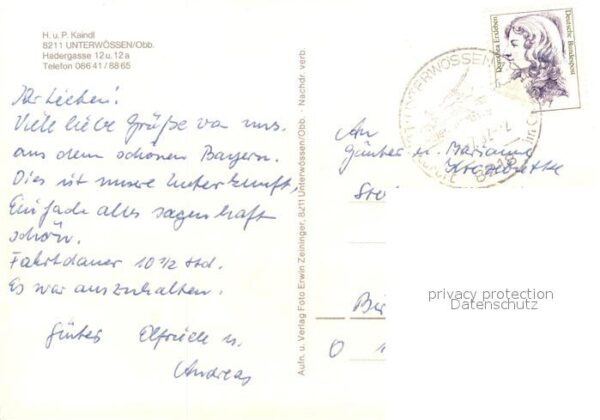 H. u. P. Kaindl
8211 UNTERWÖSSEN/Obb.
Hadergasse 12 u. 12 a
Telefon 0 86 41 / 88 65
Ihr Lieben!
Viele liebe Grüße von uns.
aus dem schönen Bayern.
Dies ist unsere Unterkunft,
Einfach alles sagenhaft
schön.
Fahrtdauer 10 ½ Std.
Es war auszuhalten.
Günter Elfriede u.
Andreas
Aufn. u. Verlag Foto Erwin Zeininger, 8211 Unterwössen/Obb. Nachdr. verb.
Dorothea Erxleben
Deutsche Bundespost
UNTERWÖSSEN
An
Günter u. Marianne
privacy protection
Datenschutz
O 1